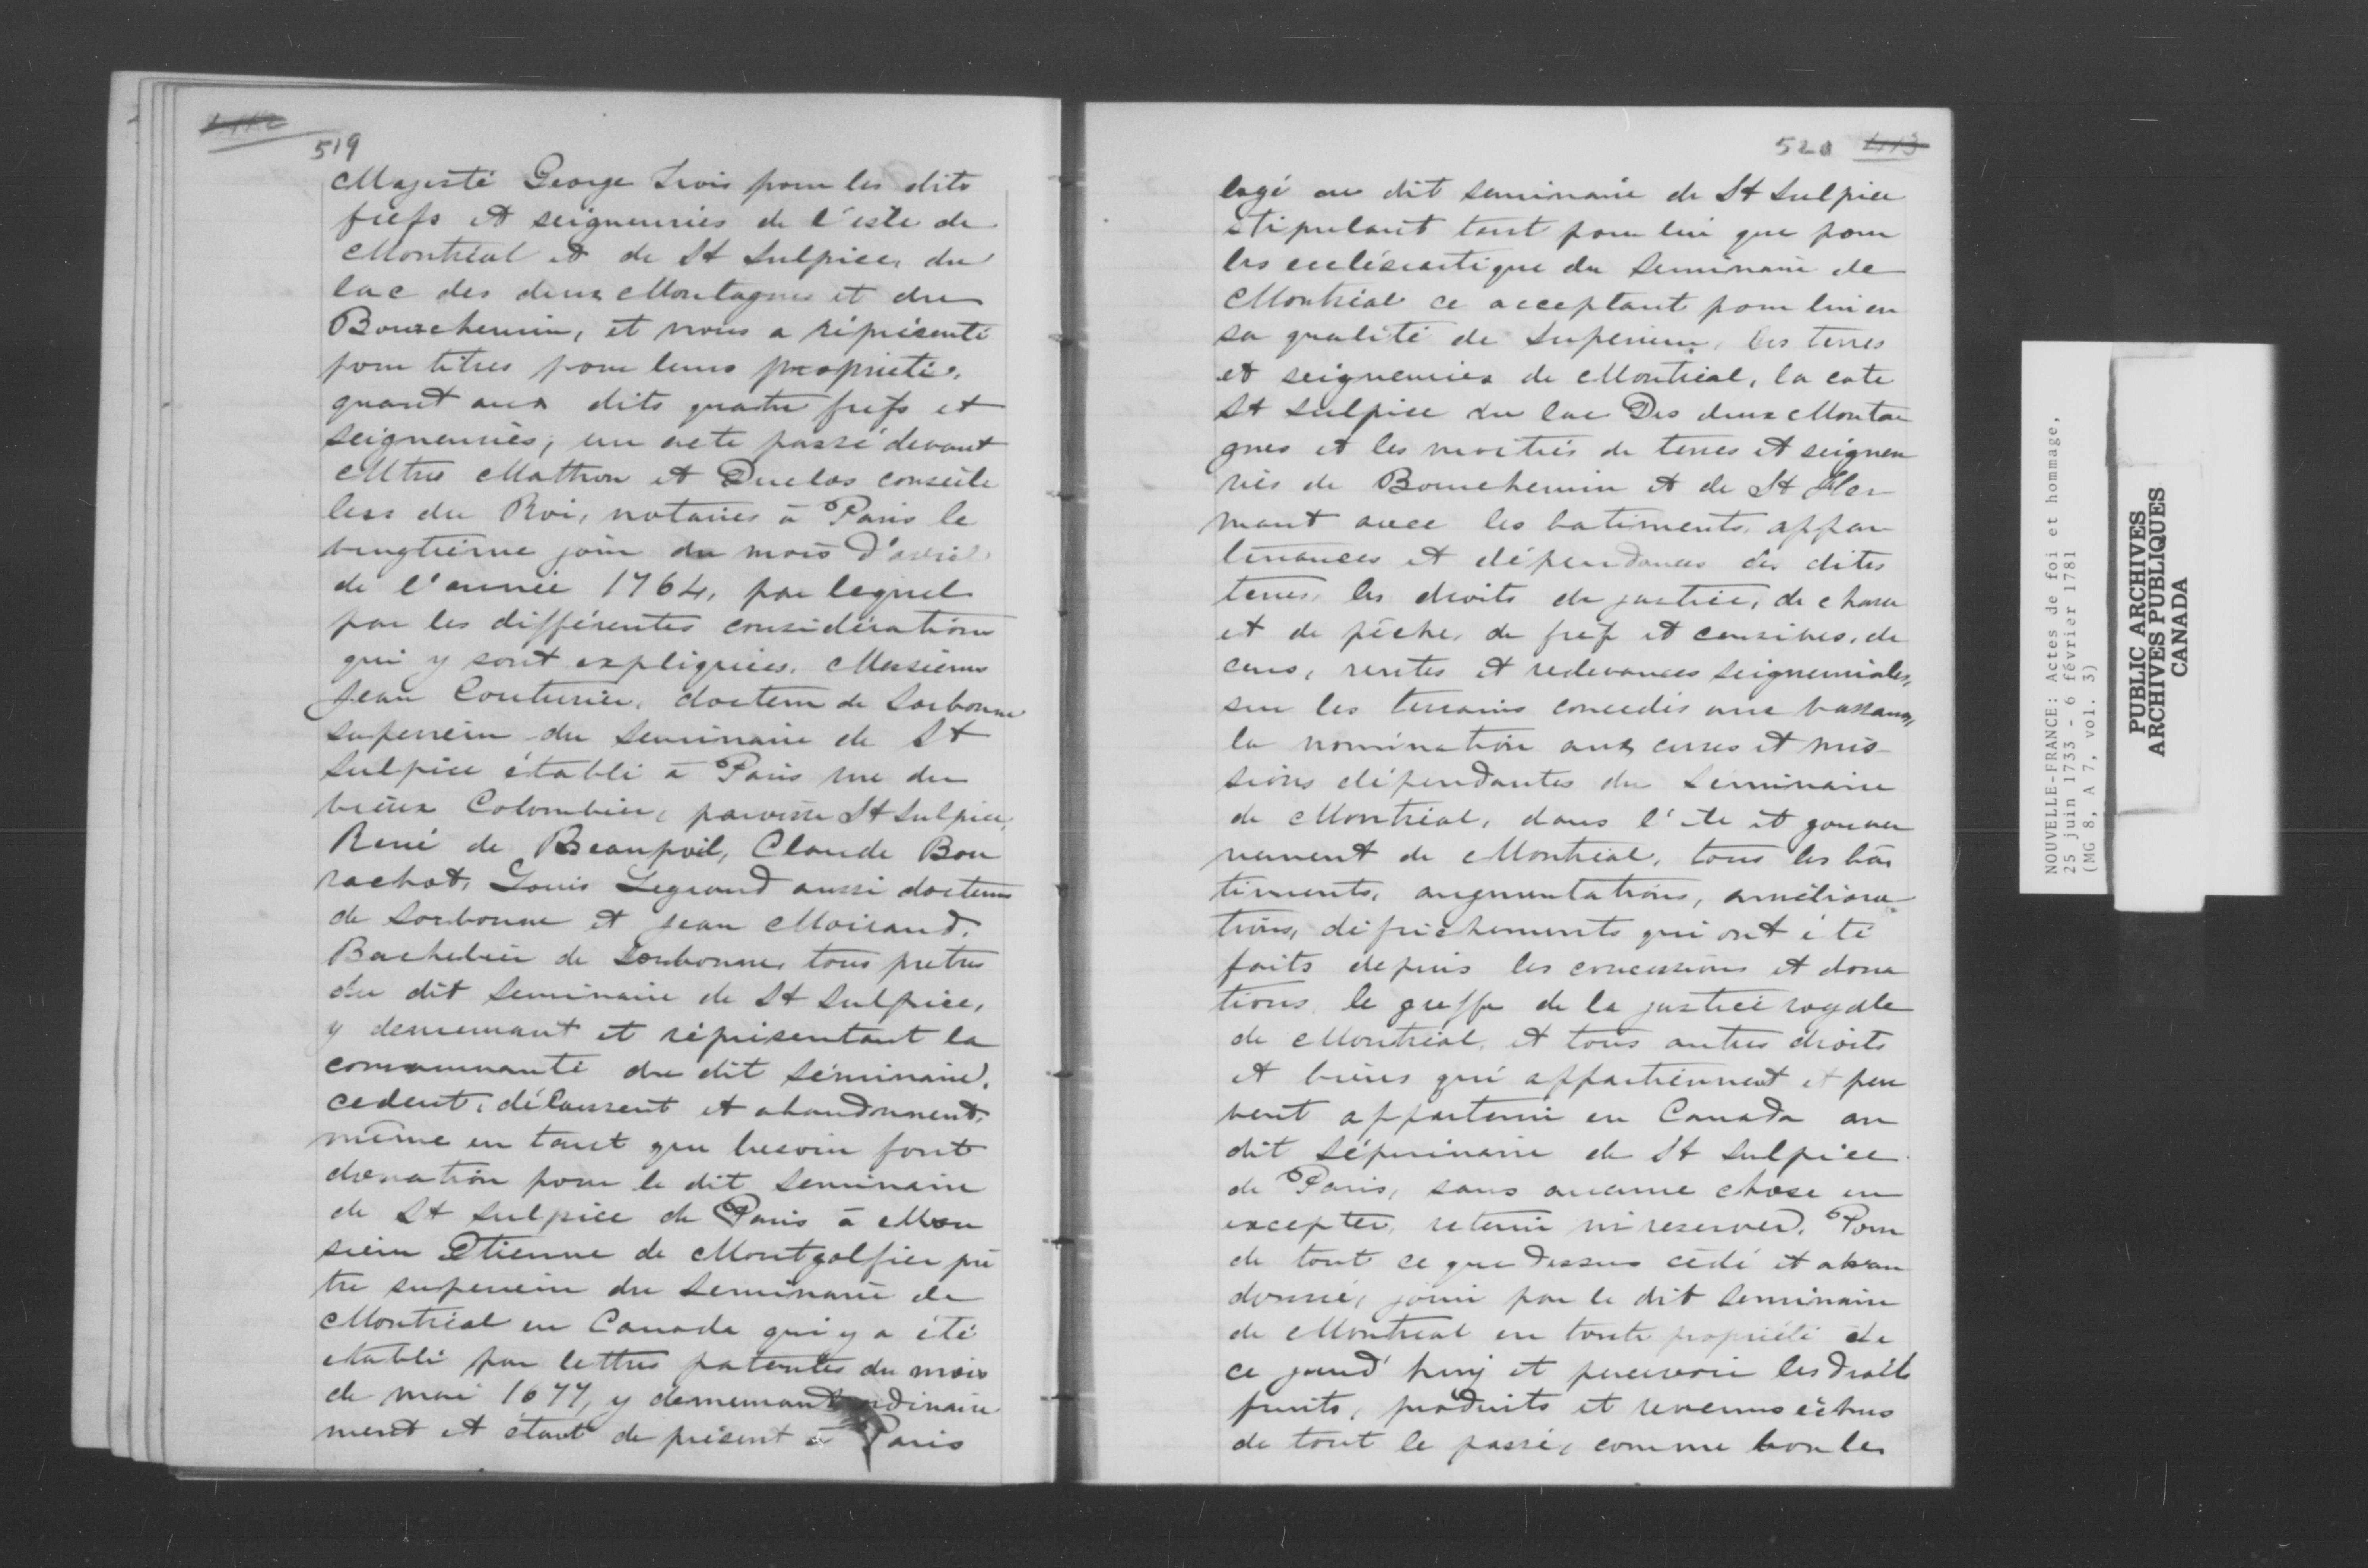 519
Majesté George Trois pour les dits
fiefs et seigneuries de l'isle de
Montréal et de St Sulpice, du
lac des deux Montagnes et du
Bourchemin, et nous a réprésenté
pour titres pour leurs proprieté,
quant aux dits quatre fiefs et
seigneuries, un acte passé devant
Mtres Mathon et Duclos conseile
lers du Roi, notaires à Paris le
vingtième jour du mois d'avril
de l'année 1764, par lequel
par les différentes considérations
qui y sont expliquées, Messieurs
Jean Couturier, docteur de Sorbonne
superieur du Seminaire de St
Sulpice établi à Paris rue du
vieux Colombier, paroisse St Sulpice,
René de Beaupoil, Claude Bou
rachot, Louis Legrand aussi docteurs
de Sorbonne et Jean Moirand,
Bachelier de Sorbonne, tous pretres
du dit Seminaire de St Sulpice,
y demeurant et réprésentant la
communauté du dit Séminaire,
cedent, délaissent et abandonnent,
même en tant que besoin font
donation pour le dit Seminaire
de St Sulpice de Paris à Mon
sieur Etienne de Montgolfier prê
tre superieur du Seminaire de
Montréal en Canada qui y a été
établi par lettres patentes du mois
de mai 1677, y demeurant ordinaire
ment et étant de présent à Paris
520 4113
logé au dit seminaire de St Sulpice
stipulant tant pour lui que pour
les ecclésiastique du Seminaire de
Montréal ce acceptant pour lui en
sa qualité de Superieur, les terres
et seigneuries de Montréal, la cote
St Sulpice du lac Des deux Monta
gnes et les moitiés de terres et seigneu
ries de Bourchemin et de St Her
mant avec les batiments, appar
tenances et dépendances des dites
terres, les droits de justice, de chasse
et de pêche, de fief et censives, de
cens, rentes et redevances Seigneuriales,
sur les terrains concedés aux vassaux,
la nomination aux cures et mis
sions dépendantes du Seminaire
de Montréal, dans l'ile et gouver
nement de Montréal, tous les bâ
timents, augmentations, améliora
tions, défrichements qui ont été
faits depuis les concessions et dona
tions, le greffe de la justice royale
de Montréal, et tous autres droits
et biens qui appartiennent et peu
vent appartenir en Canada au
dit Séminaire de St Sulpice
de Paris, sans aucune chose en
excepter, retenir ni reserver. Pour
de tout ce que dessus cédé et aban
donné, jouir par le dit Seminaire
de Montreal en toute propriété de
ce jourd'huy et percevoir les droits
fruits, produits et revenus échus
de tout le passé, comme bon les
NOUVELLE-FRANCE: Actes de foi et hommage,
25 juin 1733 - 6 février 1781
(MG 8, A 7, vol. 3)
PUBLIC ARCHIVES
ARCHIVES PUBLIQUES
CANADA